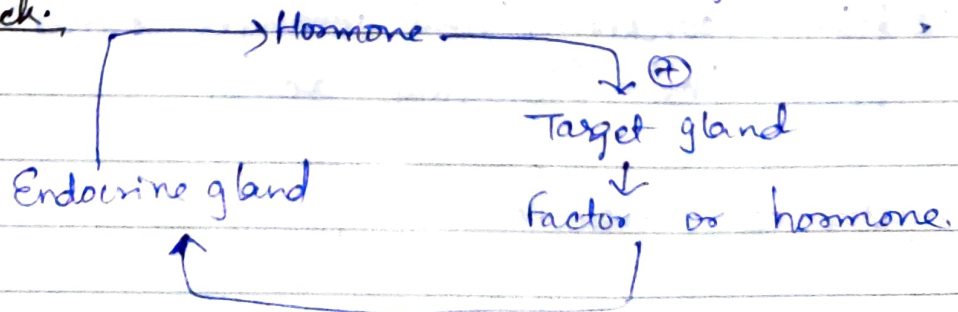 ck.
Hormone
⊕
Target gland
Endocrine gland
factor or hormone.